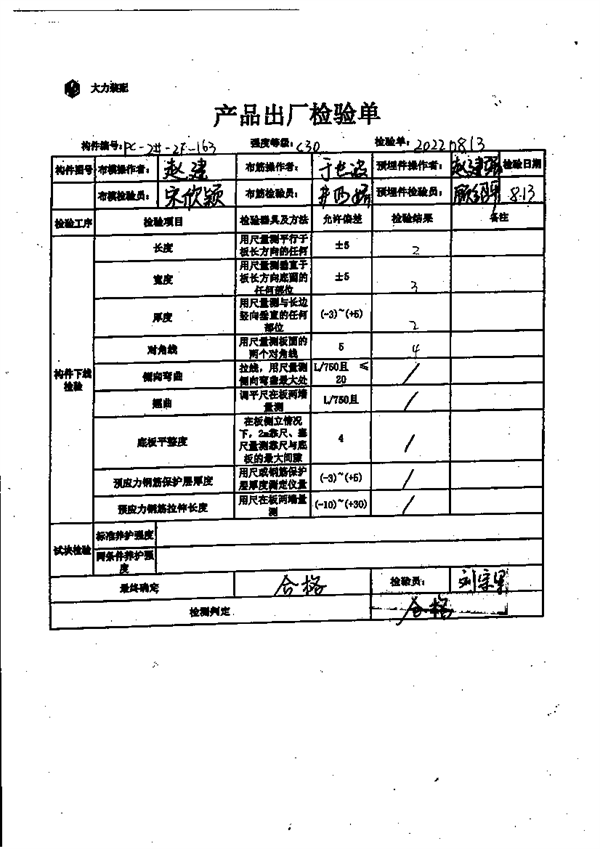 大力装配
产品出厂检验单
构件编号: PC-2#-2F-163 强度等级: C30 检验单: 2022.08.13
构件图号 布模操作者: 赵建 布筋操作者: 预埋件操作者: 赵建 检验日期
布模检验员: 宋欣颖 布筋检验员: 预埋件检验员: 8.13
检验工序 检验项目 检验器具及方法 允许偏差 检验结果 备注
构件下线检验
长度 用尺量测平行于板长方向的任何 ±5 2
宽度 用尺量测垂直于板长方向底面的任何部位 ±5 3
厚度 用尺量测与长边竖向垂直的任何部位 (-3)~(+5) 2
对角线 用尺量测板面的两个对角线 5 4
侧向弯曲 拉线,用尺量测侧向弯曲最大处 L/750且 ≤20 /
翘曲 调平尺在板两端量测 L/750且 /
底板平整度 在板侧立情况下,2m靠尺、塞尺量测靠尺与底板的最大间隙 4 /
预应力钢筋保护层厚度 用尺或钢筋保护层厚度测定仪量 (-3)~(+5) /
预应力钢筋拉伸长度 用尺在板两端量测 (-10)~(+30) /
试块检验 标准养护强度
同条件养护强度
最终确定 合格 检验员:
检测判定 合格